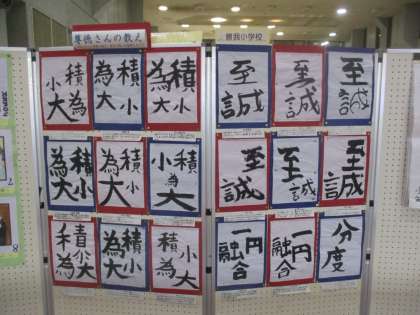 尊徳さんの教え
曽我小学校
積小為大
積小為大
積小為大
至誠
至誠
至誠
積小為大
積小為大
積小為大
至誠
至誠
至誠
積小為大
積小為大
積小為大
一円融合
一円融合
分度